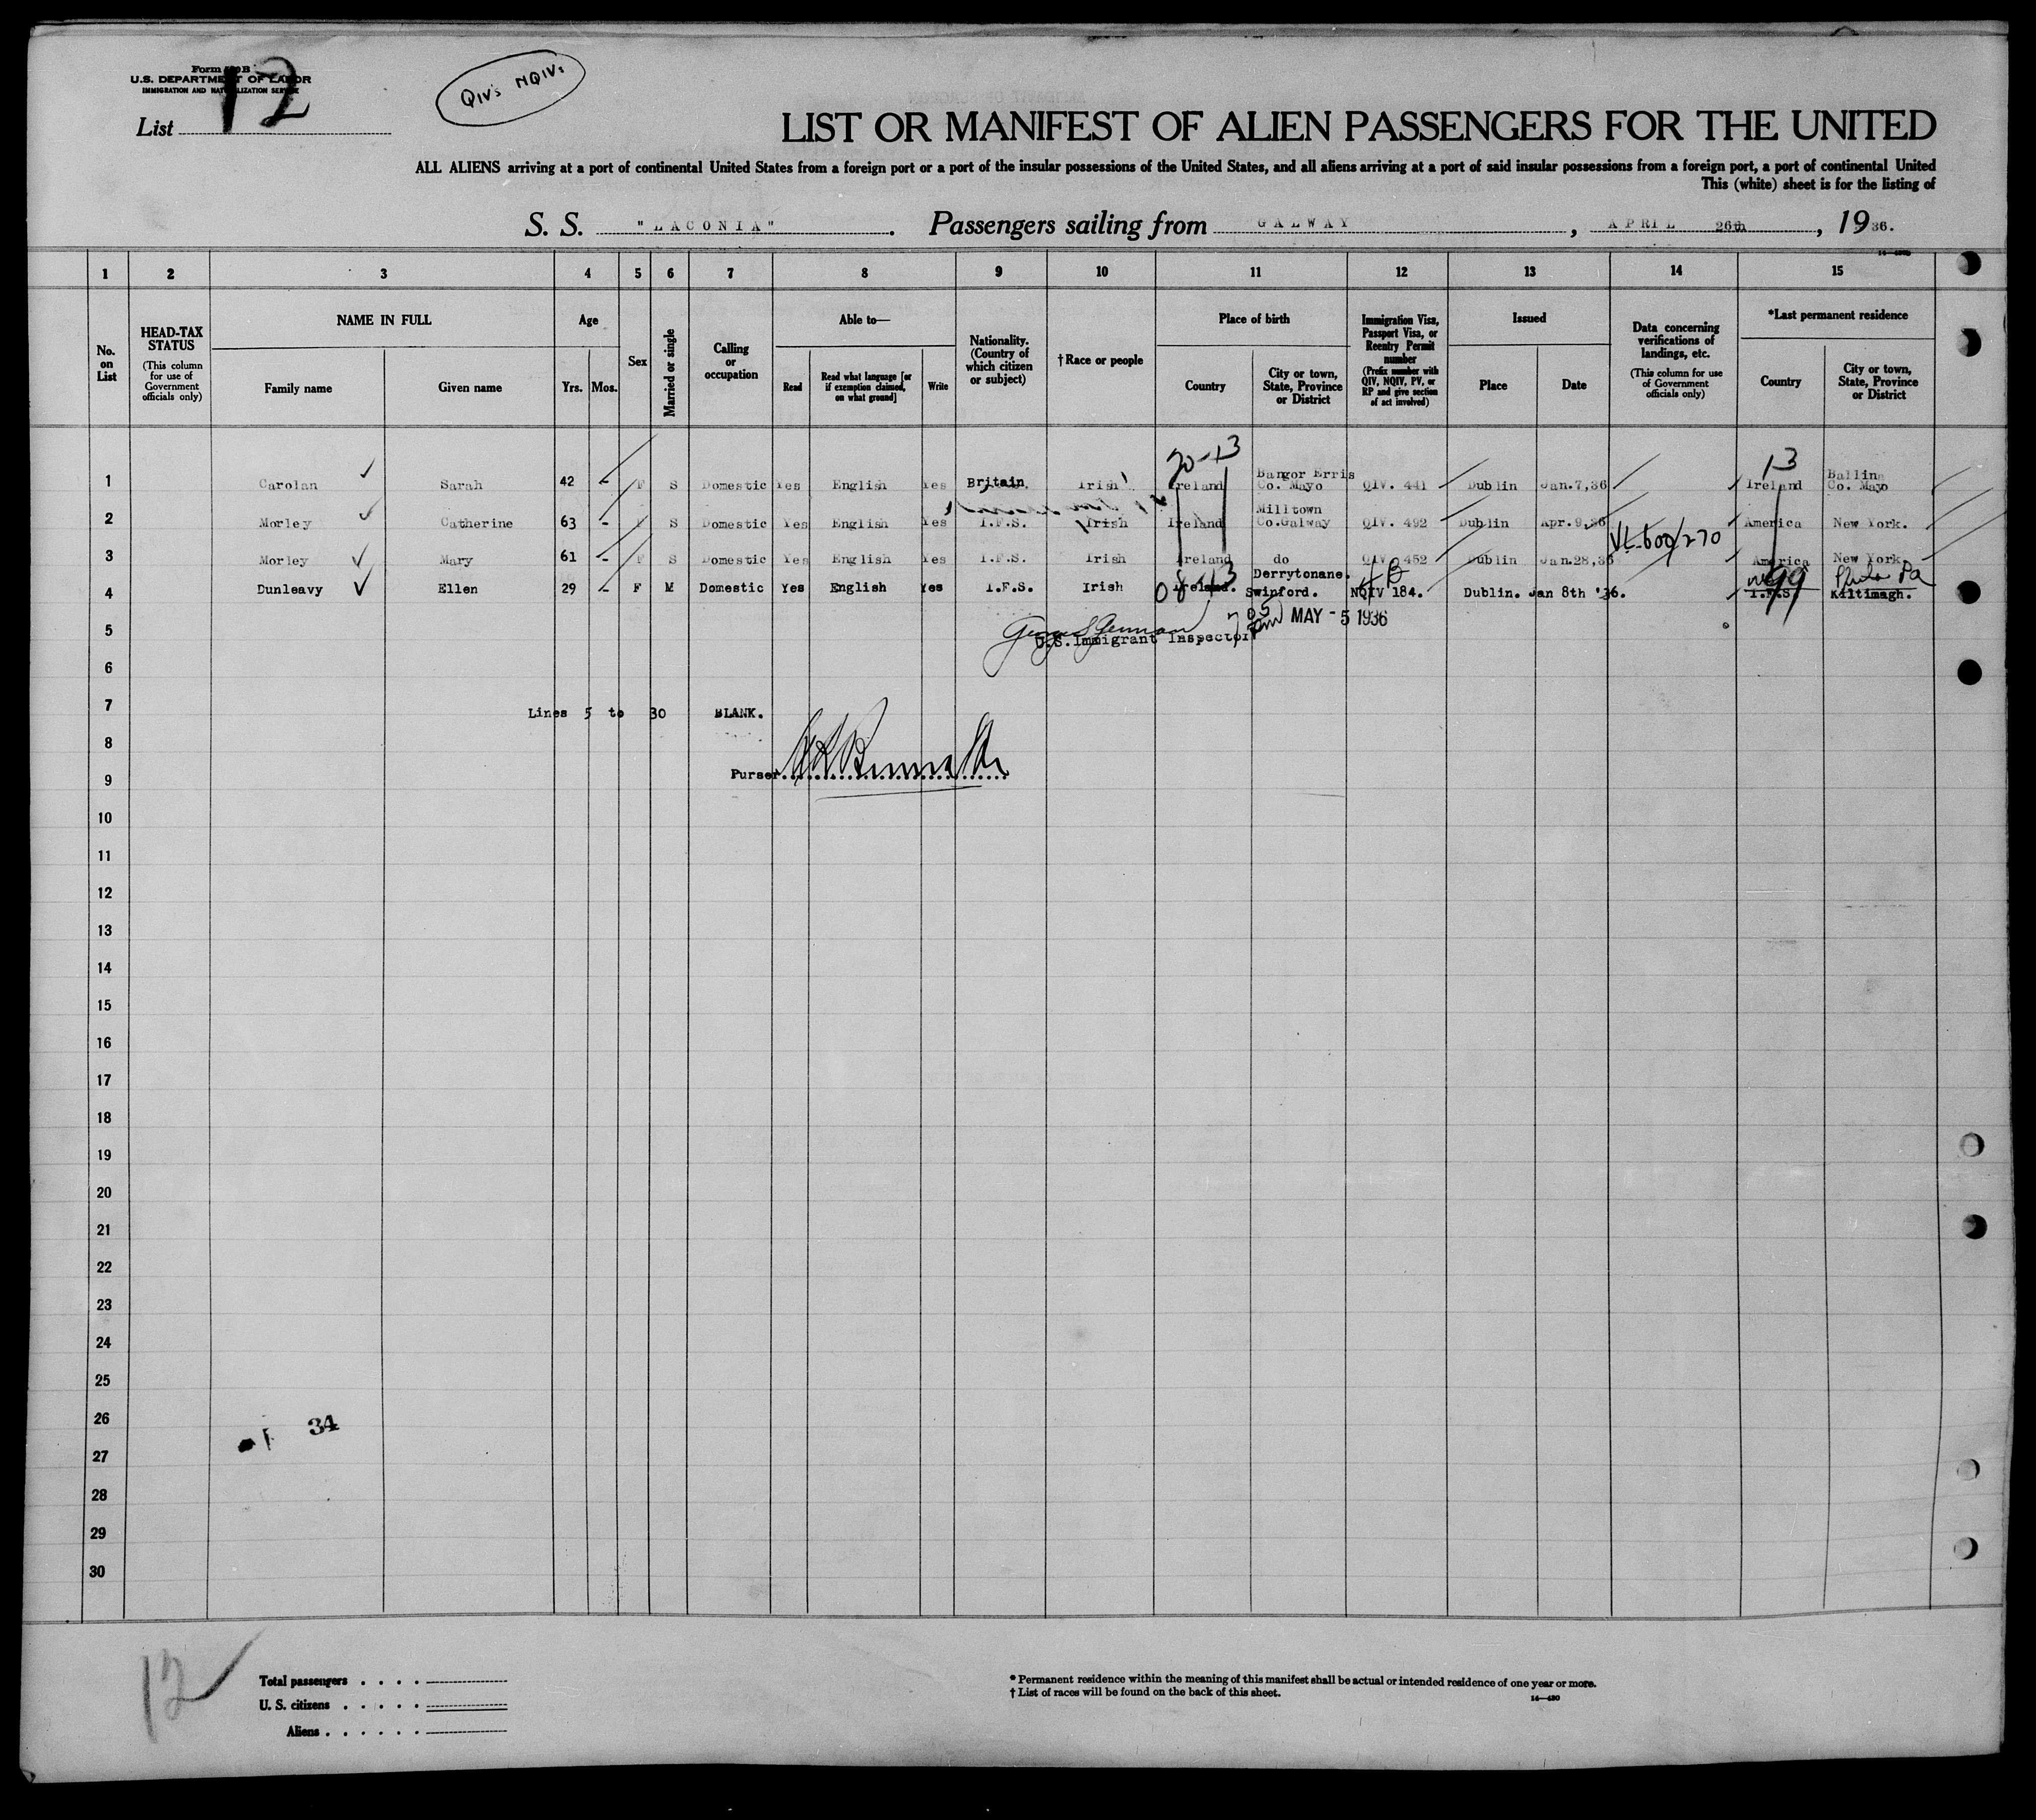 Form 500 B
U.S. DEPARTMENT OF LABOR
IMMIGRATION AND NATURALIZATION SERVICE
List 12
QIV's NQIVs
LIST OR MANIFEST OF ALIEN PASSENGERS FOR THE UNITED
ALL ALIENS arriving at a port of continental United States from a foreign port or a port of the insular possessions of the United States, and all aliens arriving at a port of said insular possessions from a foreign port, a port of continental United
This (white) sheet is for the listing of
S. S. "LACONIA". Passengers sailing from GALWAY, APRIL 26th, 1936.
1 2 3 4 5 6 7 8 9 10 11 12 13 14 15
No. on List
HEAD-TAX STATUS (This column for use of Government officials only)
NAME IN FULL Family name Given name
Age Yrs. Mos.
Sex
Married or single
Calling or occupation
Able to— Read Read what language [or if exemption claimed, on what ground] Write
Nationality. (Country of which citizen or subject)
† Race or people
Place of birth Country City or town, State, Province or District
Immigration Visa, Passport Visa, or Reentry Permit number (Prefix number with QIV, NQIV, PV, or RP and give section of act involved)
Issued Place Date
Data concerning verifications of landings, etc. (This column for use of Government officials only)
*Last permanent residence Country City or town, State, Province or District
20-13 13
1 Carolan Sarah 42 - F S Domestic Yes English Yes Britain Irish Ireland Bangor Erris Co. Mayo QIV. 441 Dublin Jan.7,36 Ireland Ballina Co. Mayo
2 Morley Catherine 63 - F S Domestic Yes English Yes I.F.S. Irish Ireland Milltown Co.Galway QIV. 492 Dublin Apr.9,36 America New York.
VL-600/270
3 Morley Mary 61 - F S Domestic Yes English Yes I.F.S. Irish Ireland do QIV. 452 Dublin Jan.28,36 America New York
4 Dunleavy Ellen 29 - F M Domestic Yes English Yes I.F.S. Irish 08 13 Ireland. Derrytonane. Swinford. 4 B NQIV 184. Dublin. Jan 8th '36. 99 I.F.S. Phila Pa Kiltimagh.
5 MAY - 5 1936
U.S. Immigrant Inspector
6
7 Lines 5 to 30 BLANK.
8
Purser
9
10
11
12
13
14
15
16
17
18
19
20
21
22
23
24
25
26 34
27
28
29
30
12
Total passengers
U. S. citizens
Aliens
* Permanent residence within the meaning of this manifest shall be actual or intended residence of one year or more.
† List of races will be found on the back of this sheet.
14—480